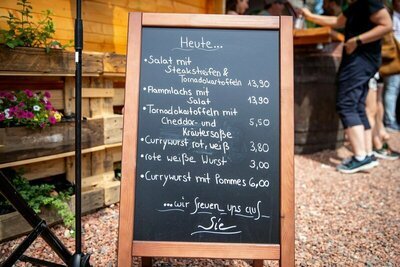 Heute...
• Salat mit
Steakstreifen &
Tornadokartoffeln 13,90
• Flammlachs mit
Salat 13,90
• Tornadokartoffeln mit
Cheddar- und 5,50
Kräutersoße
• Currywurst rot, weiß 3,80
• rote weiße Wurst 3,00
• Currywurst mit Pommes 6,00
...wir freuen uns auf
Sie